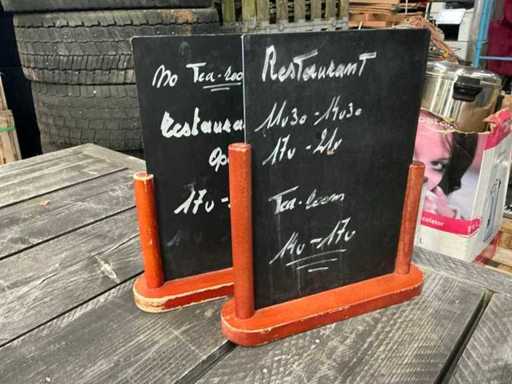 no Tea-room
Restaura
ope
17u -
Restaurant
11u30 - 14u30
17u - 21u
Tea-room
14u - 17u